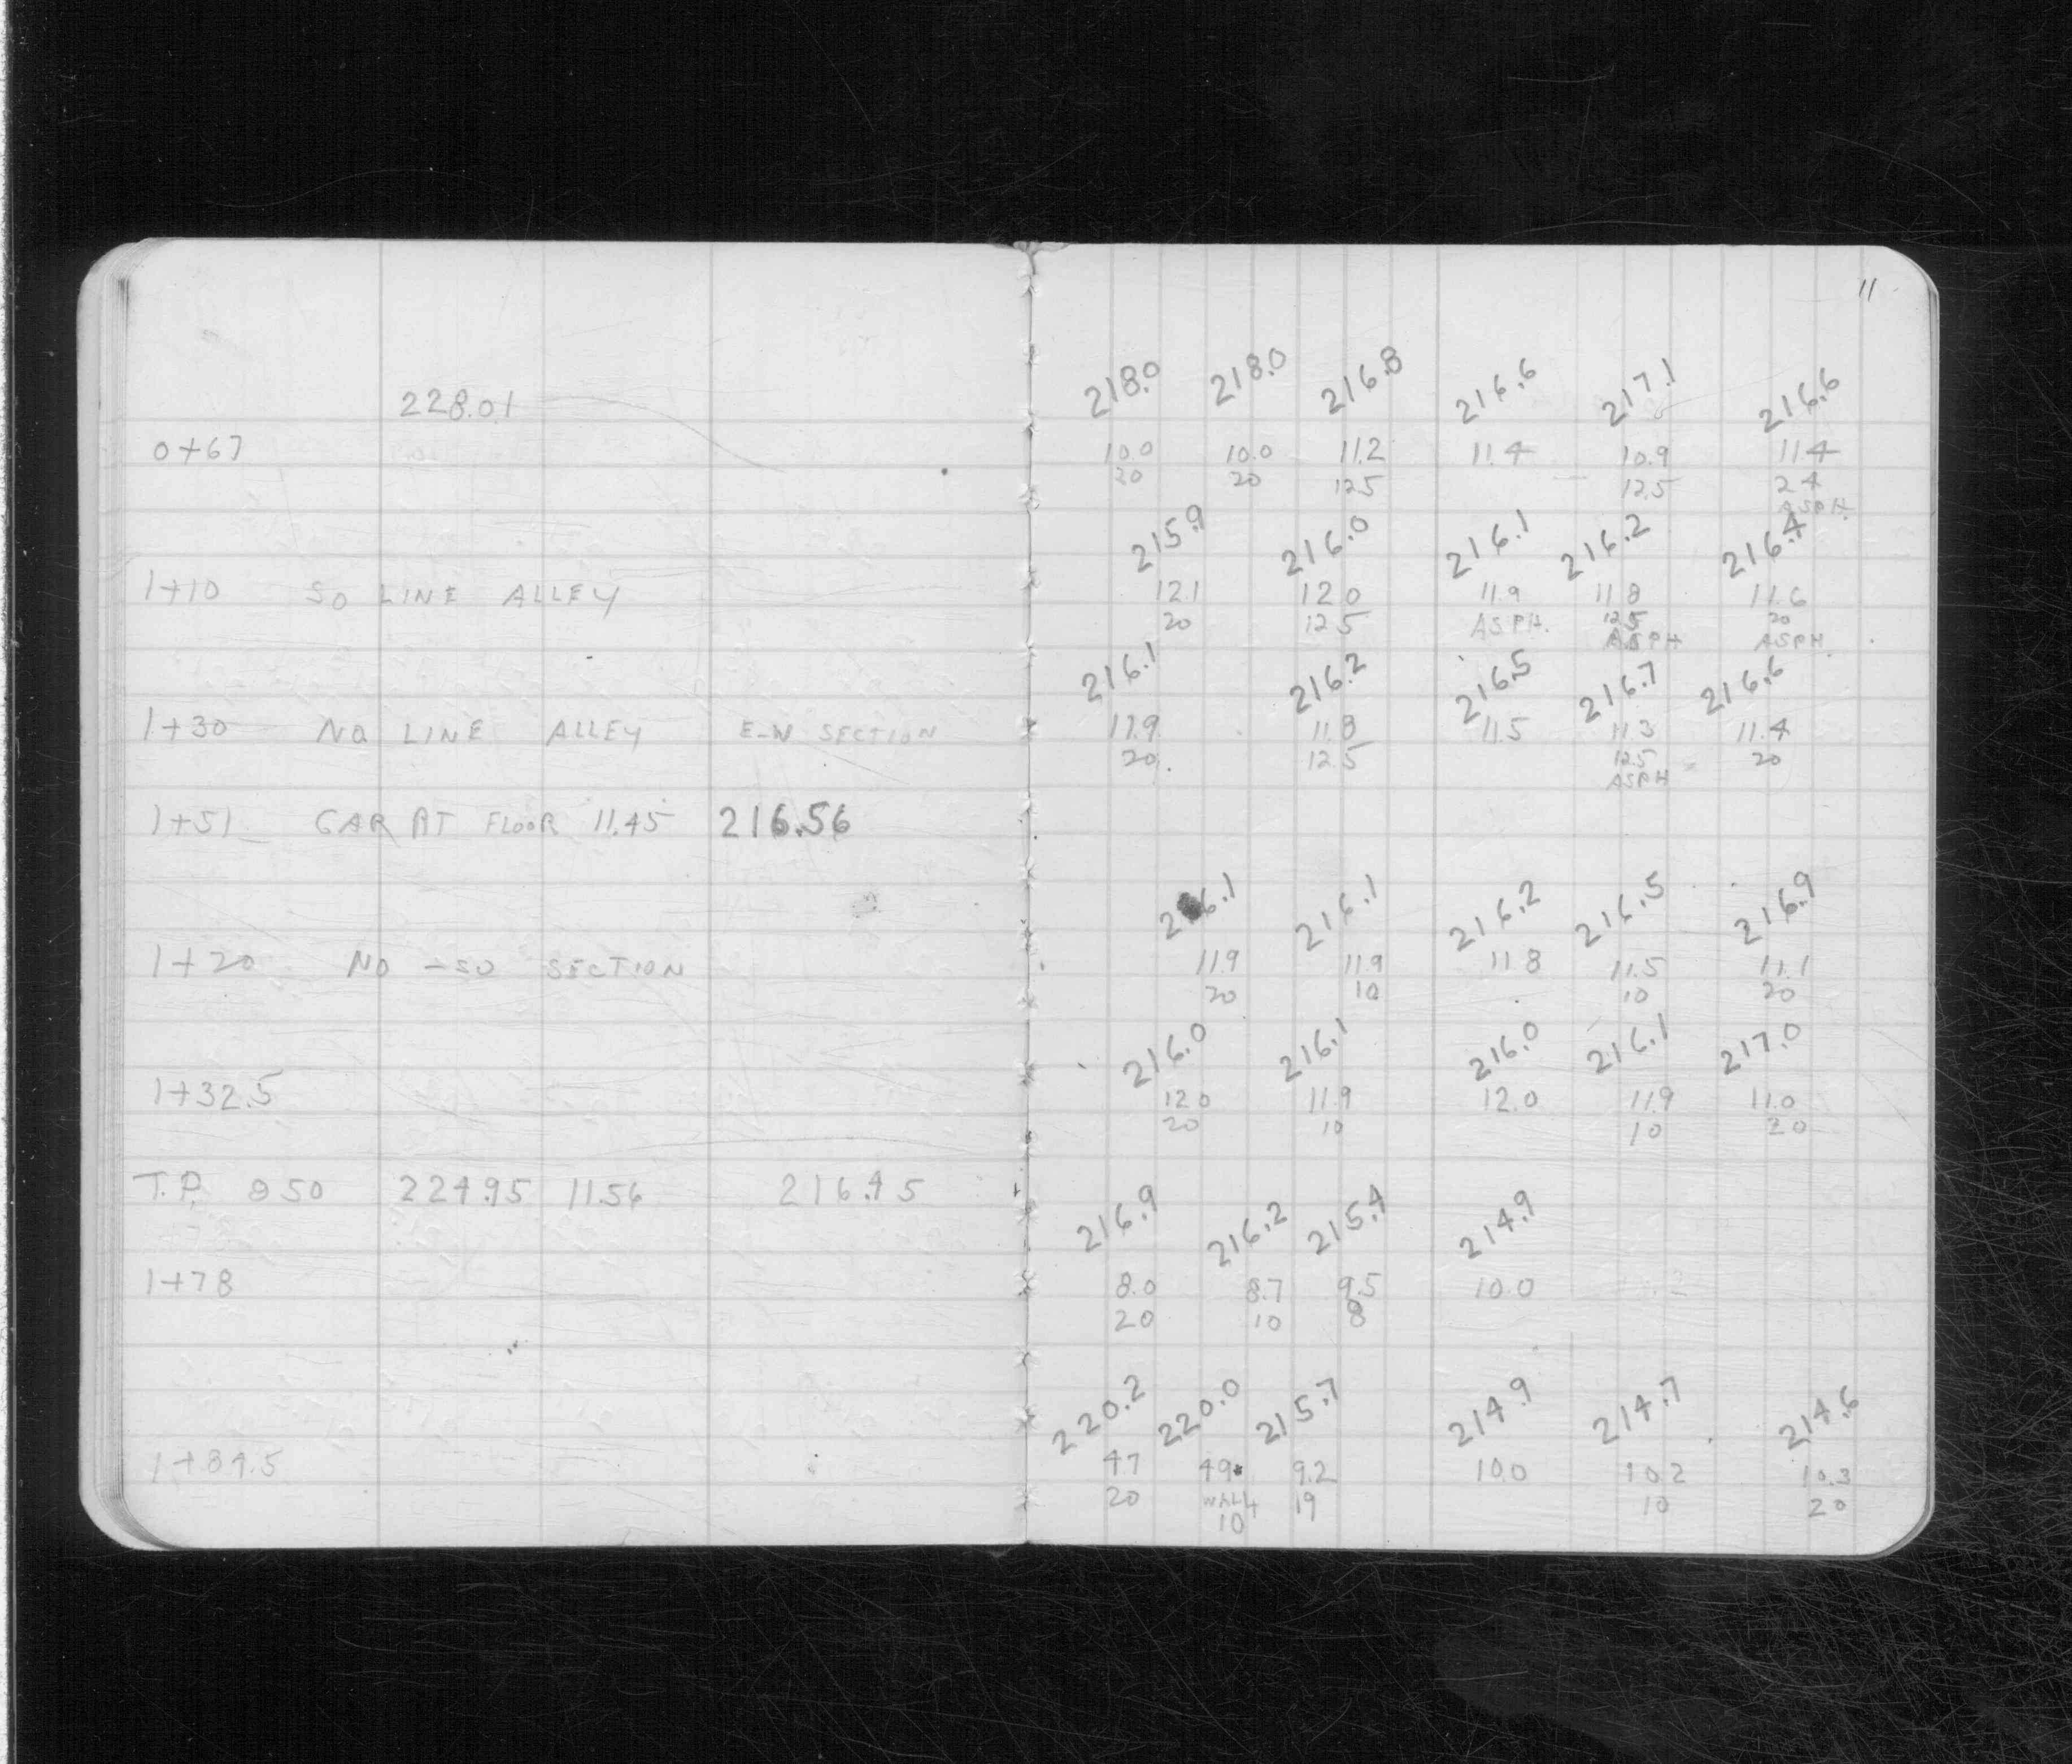 11
218.0 218.0 216.8 216.6 217.1 216.6
228.01
0+67 10.0 10.0 11.2 11.4 10.9 11.4
20 20 12.5 12.5 24
ASPH.
215.9 216.0 216.1 216.2 216.4
1+10 SO LINE ALLEY 12.1 12.0 11.9 11.8 11.6
20 12.5 ASPH. 12.5 20
ASPH ASPH.
216.1 216.2 216.5 216.7 216.6
1+30 NO LINE ALLEY E-W SECTION 11.9 11.8 11.5 11.3 11.4
20 12.5 12.5 20
ASPH
1+51 GAR AT FLOOR 11.45 216.56
216.1 216.1 216.2 216.5 216.9
1+20 NO-SO SECTION 11.9 11.9 11.8 11.5 11.1
20 10 10 20
216.0 216.1 216.0 216.1 217.0
1+32.5 12.0 11.9 12.0 11.9 11.0
20 10 10 20
T.P. 8.50 224.95 11.56 216.45
216.9 216.2 215.4 214.9
1+78 8.0 8.7 9.5 10.0
20 10 8
220.2 220.0 215.7 214.9 214.7 214.6
1+84.5 4.7 4.9 9.2 10.0 10.2 10.3
20 WALL 19 10 20
10